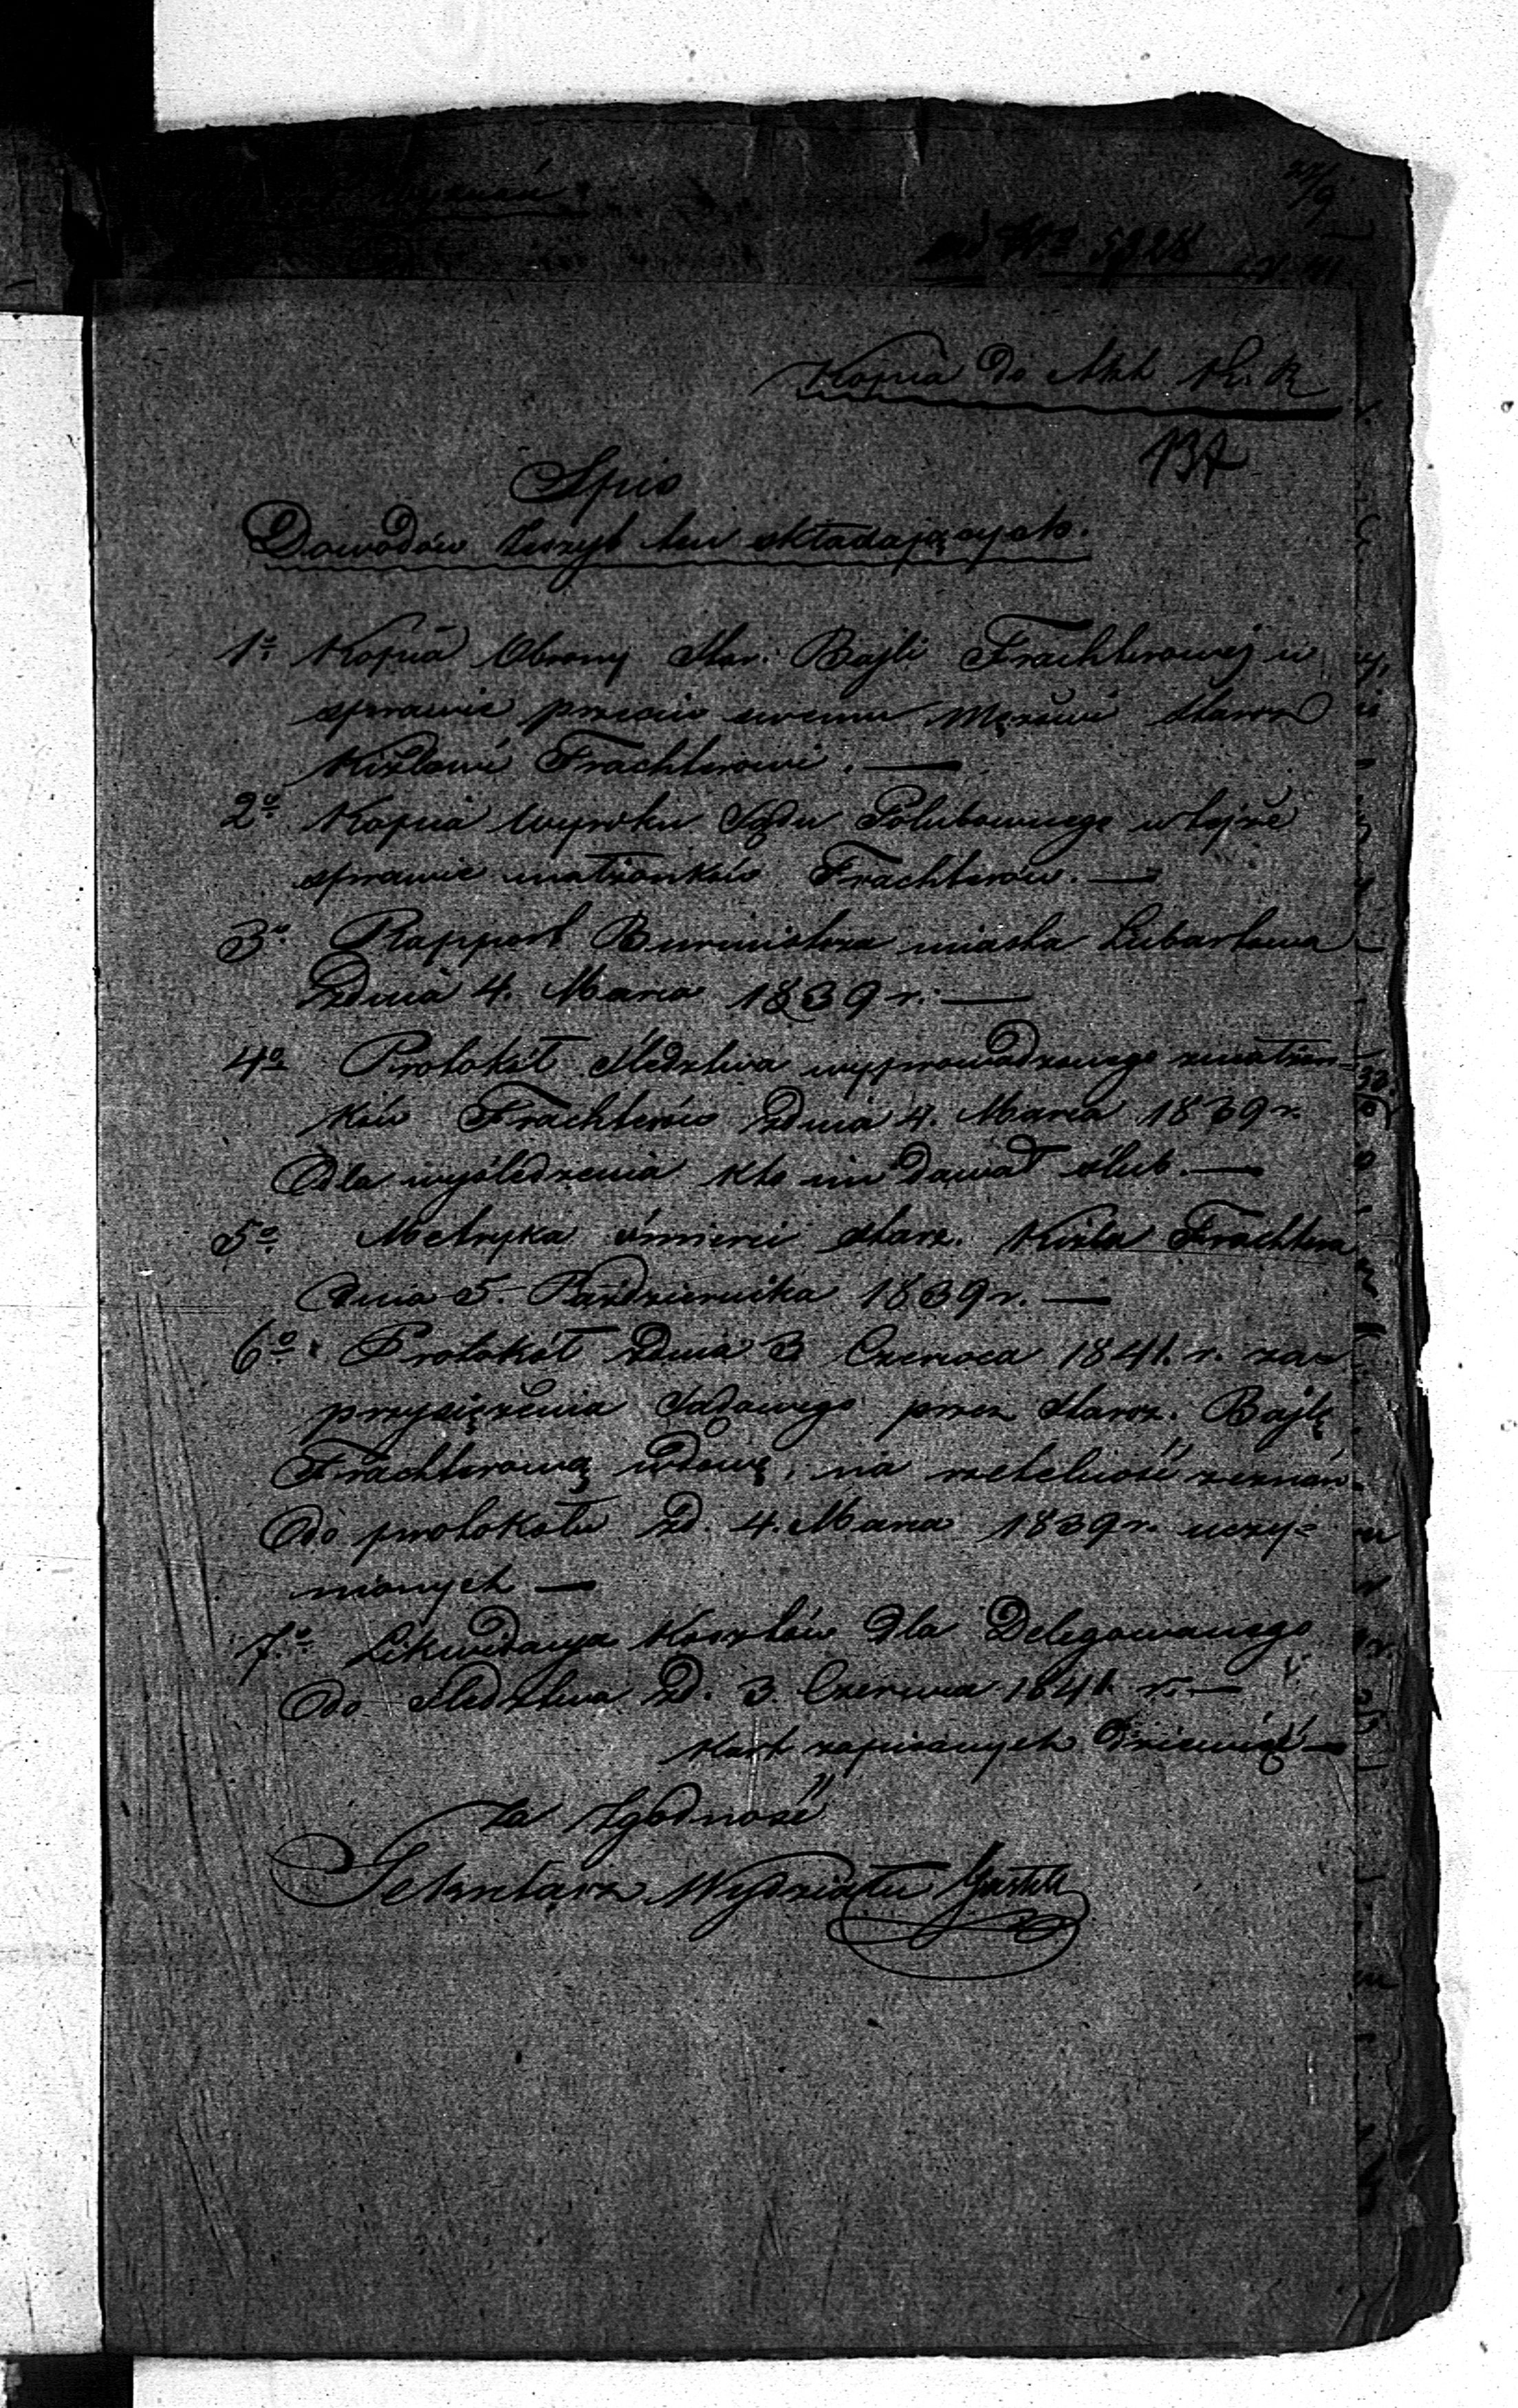 27/9
ad Nº 5928
Kopia do Akt K. R.
137
Spis
Dowodów Zeszyt ten składających.
1º Kopia Obrony Star: Bajli Frachterowej w
sprawie przeciw swemu Mężowi Staroz
Kizlowi Frachterowi. —
2º Kopia Wyroku Sądu Polubownego w tejże
sprawie małżonków Frachterów. —
3º Rapport Burmistrza miasta Lubartowa
z dnia 4. Marca 1839 r. —
4º Protokół Śledztwa wyprowadzonego z małżon=
ków Frachterów z dnia 4. Marca 1839 r.
dla wyśledzenia kto im dawał ślub. —
5º Metryka śmierci Starz. Kizla Frachtera
dnia 5. Października 1839 r. —
6º Protokół z dnia 3 Czerwca 1841. r. za=
przysiężenia Sądowego przez Staroz. Bajlę
Frachterową wdowę, na rzetelność zeznań
do protokołu z d. 4. Marca 1839 r. uczy=
nionych —
7º Likwidacya Kosztów dla Delegowanego
do Śledztwa z d. 3. Czerwca 1841 r. —
Kart zapisanych Dziewięć —
Za Zgodność
Sekretarz Wydziału